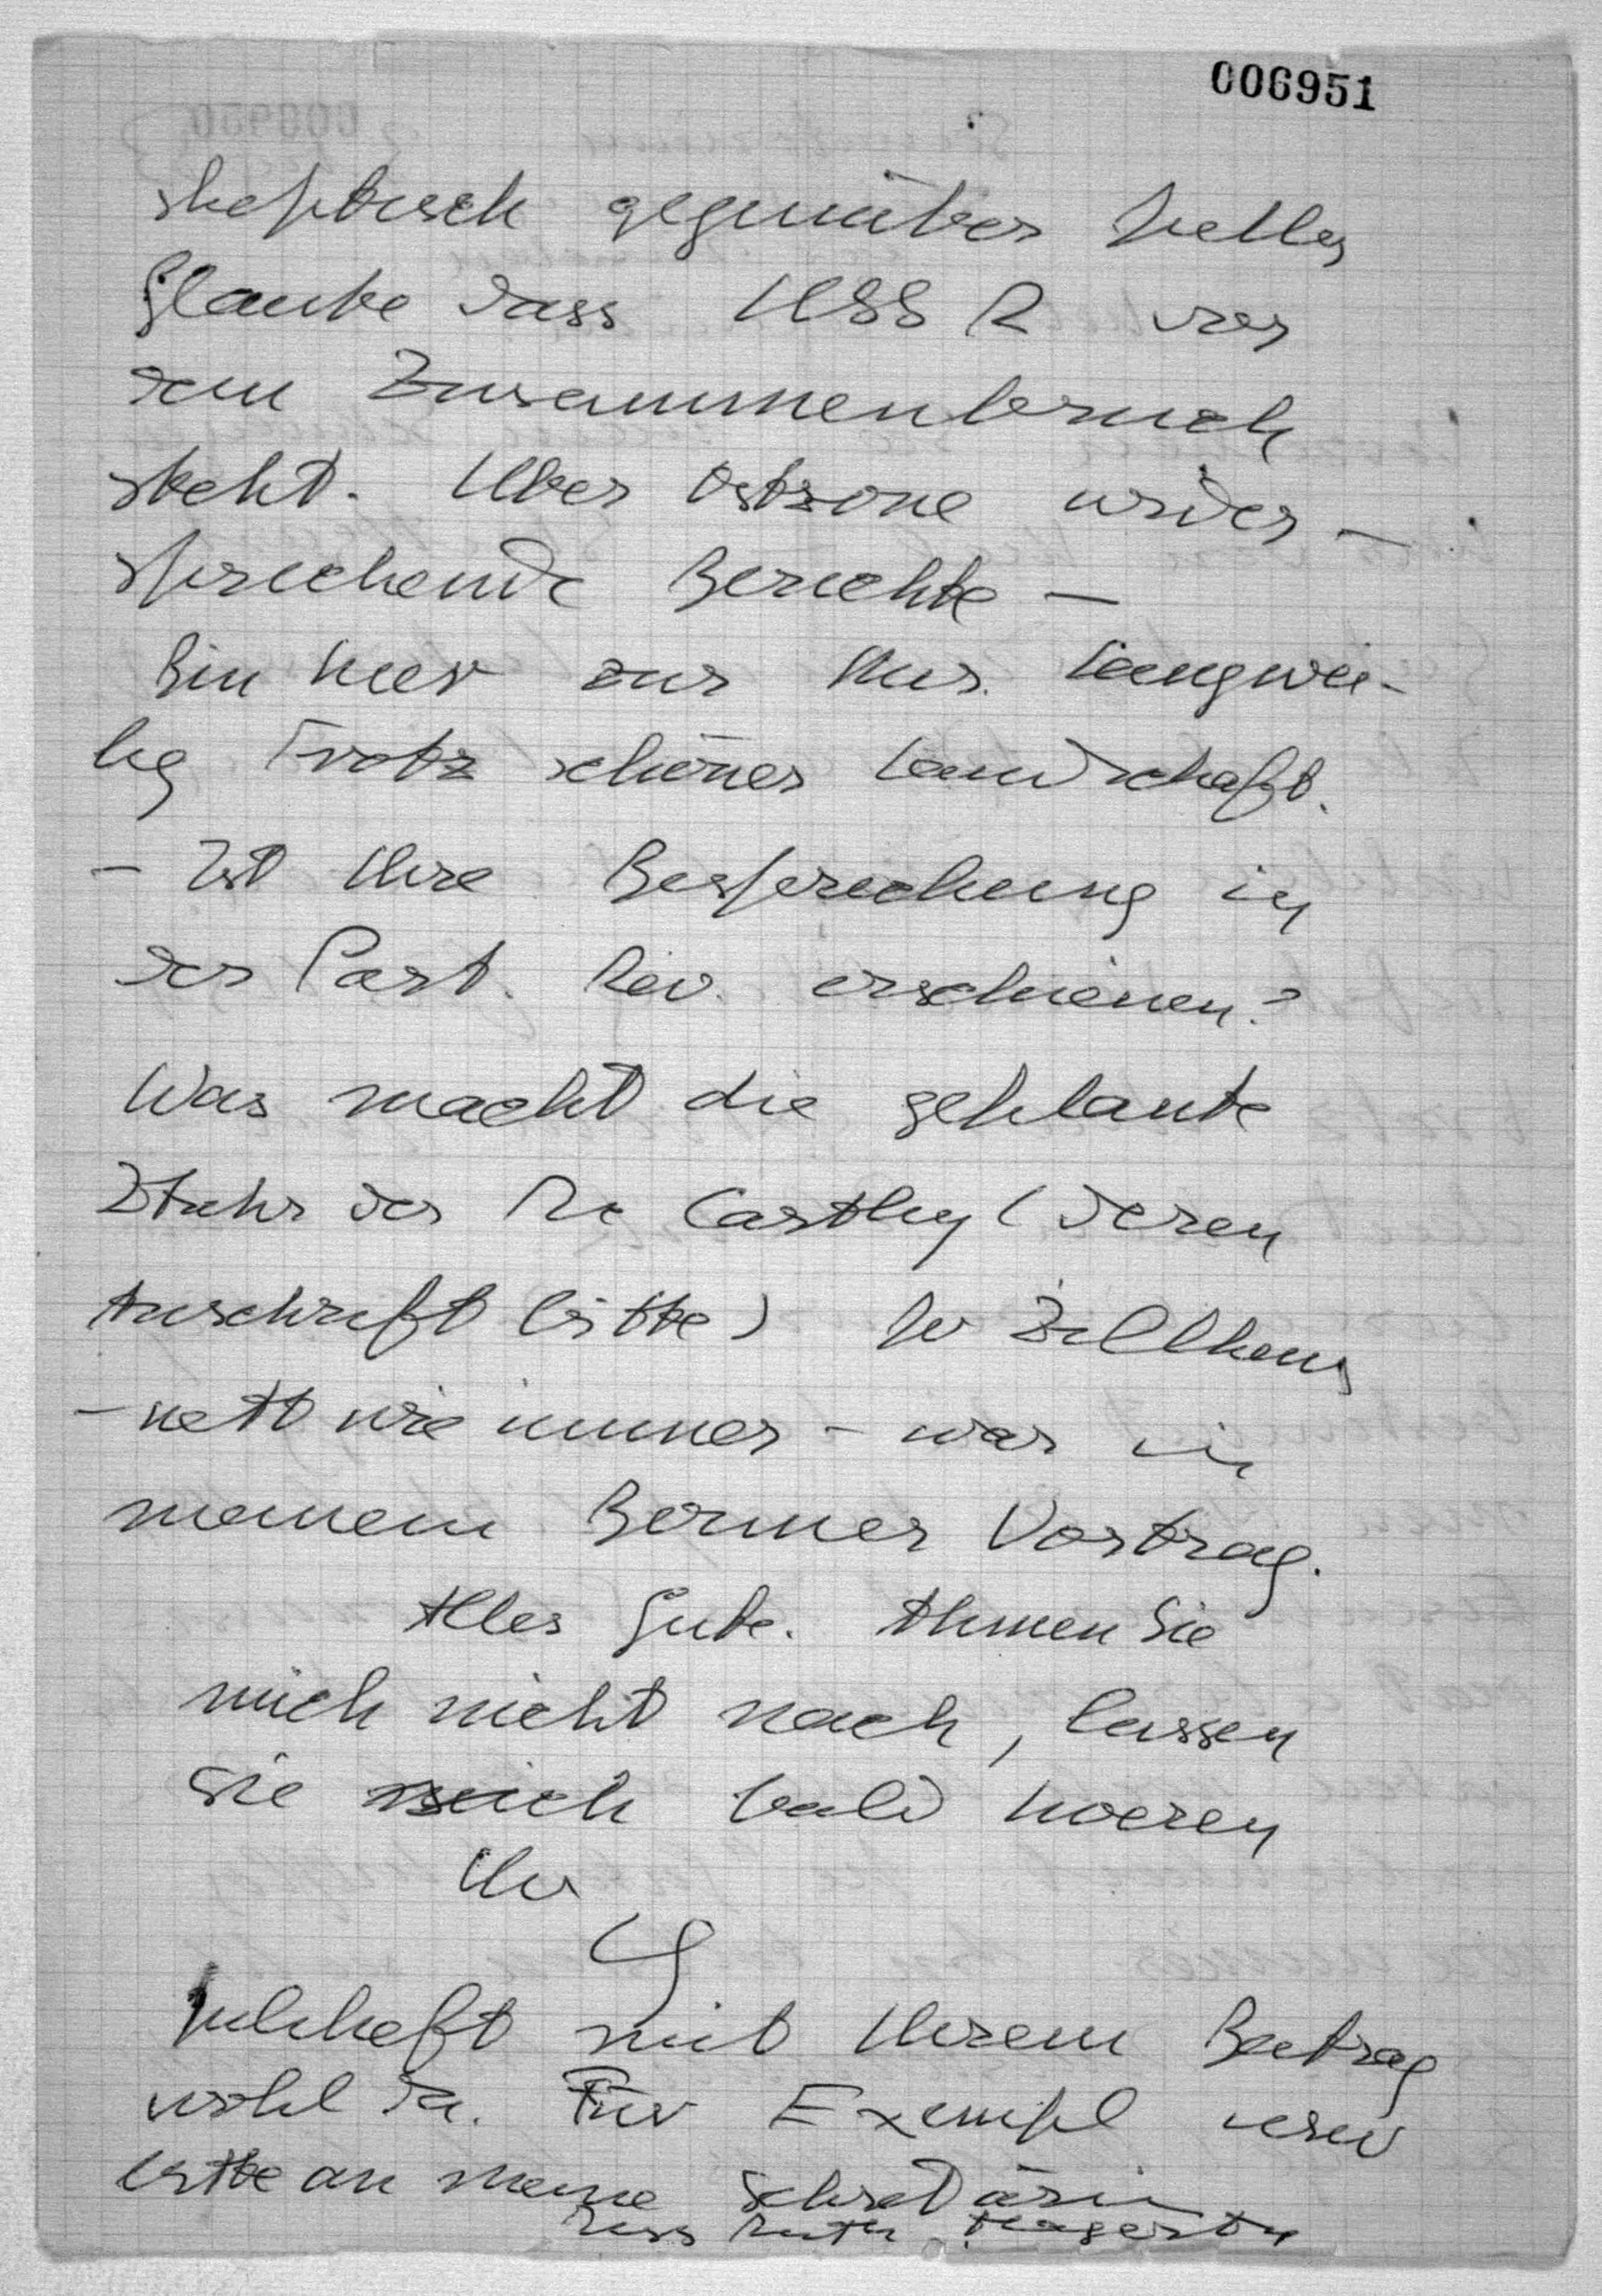 006951
skeptisch gegenüber
Glaube dass USSR vor
dem Zusammenbruch
steht. Über Ostzone wider-
sprechende Berichte —
Bin hier zur Kur. Langwei-
lig trotz schöner Landschaft.
- Ist Ihre Besprechung in
der Part. Rev. erschienen?
Was macht die geplante
Ztschr der Mc Carthy (deren
Anschrift bitte)
- nett wie immer - war in
meinem Berner Vortrag.
Alles Gute. Ahmen Sie
mich nicht nach, lassen
Sie mich bald hoeren
Ihr
Juliheft mit Ihrem Beitrag
wohl da. Für Exempl usw
bitte an meine Sekretärin
Miss Ruth Hagerty